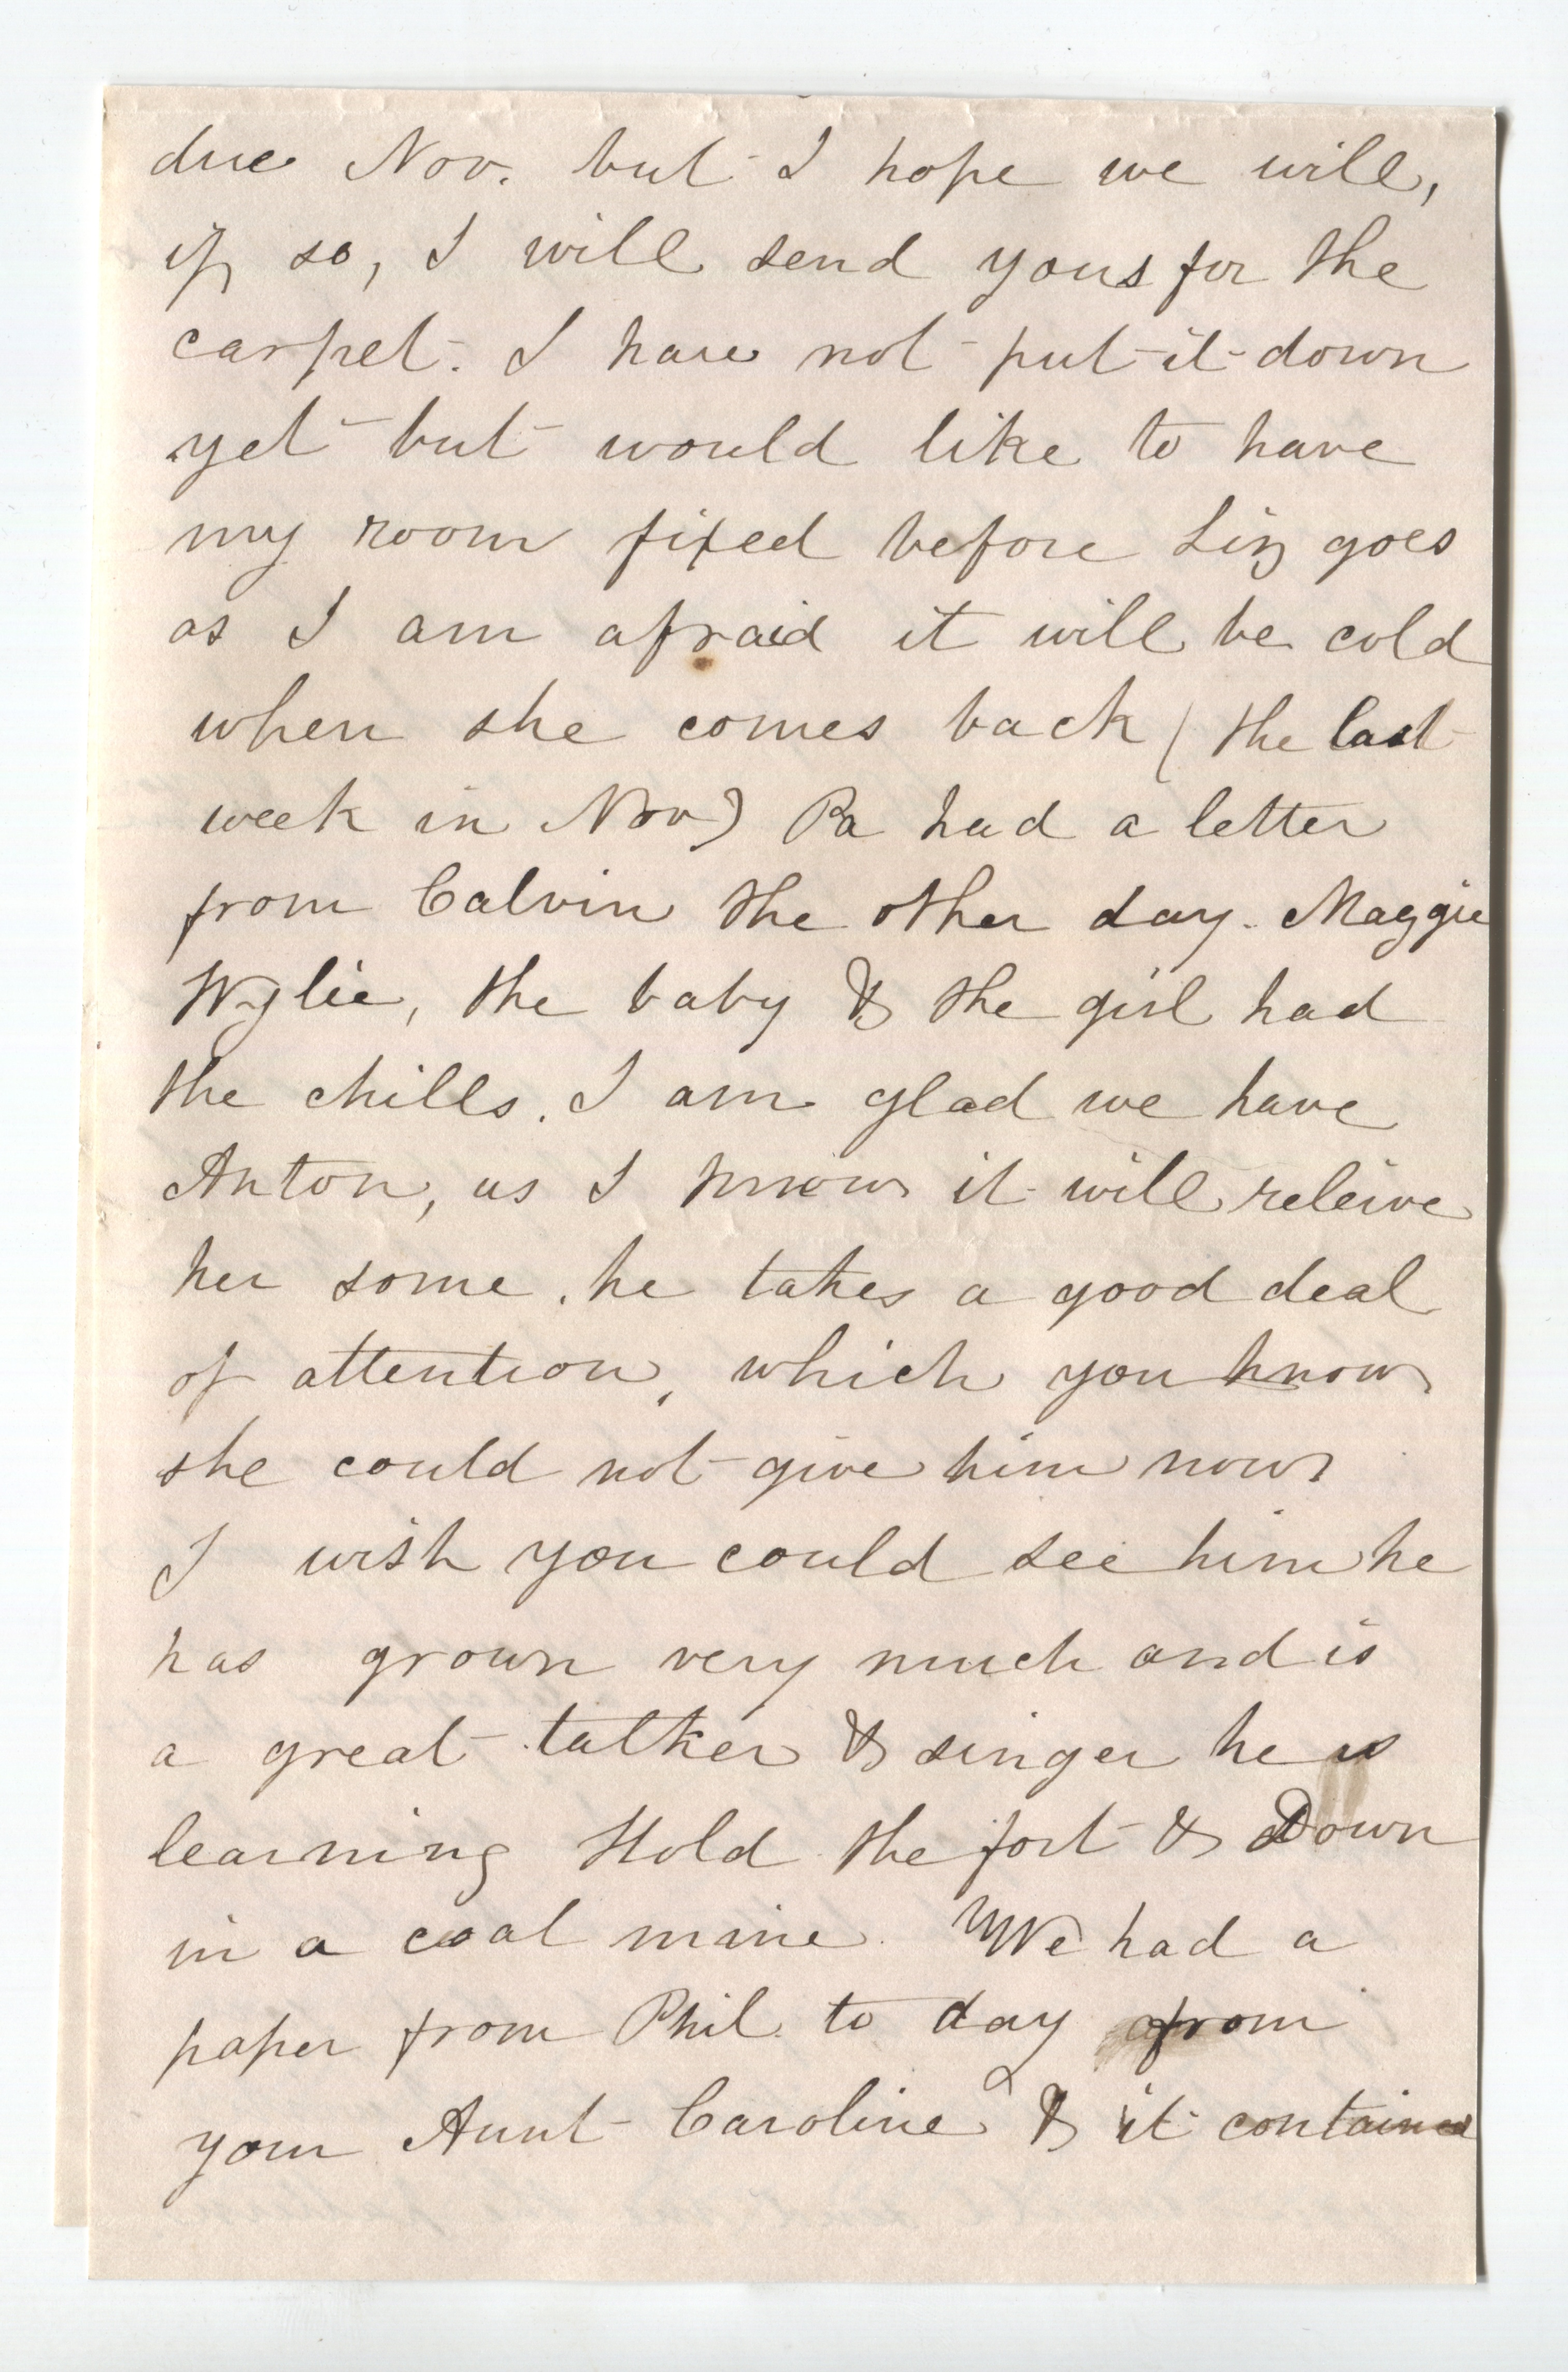 due Nov. but I hope we will,
if so, I will send yous for the
carpet. I have not put it down
yet but would like to have
my room fixed before Liz goes
as I am afraid it will be cold
when she comes back (the last
week in Nov) Pa had a letter
from Calvin the other day. Maggie
Wylie, the baby & the girl had
the chills. I am glad we have
Anton, as I know it will releive
her some. he takes a good deal
of attention, which you know
she could not give him now
I wish you could see him he
has grown very much and is
a great talker & singer he is
learning Hold the fort & Down
in a coal mine. We had a
paper from Phil. to day from
your Aunt Caroline & it contained